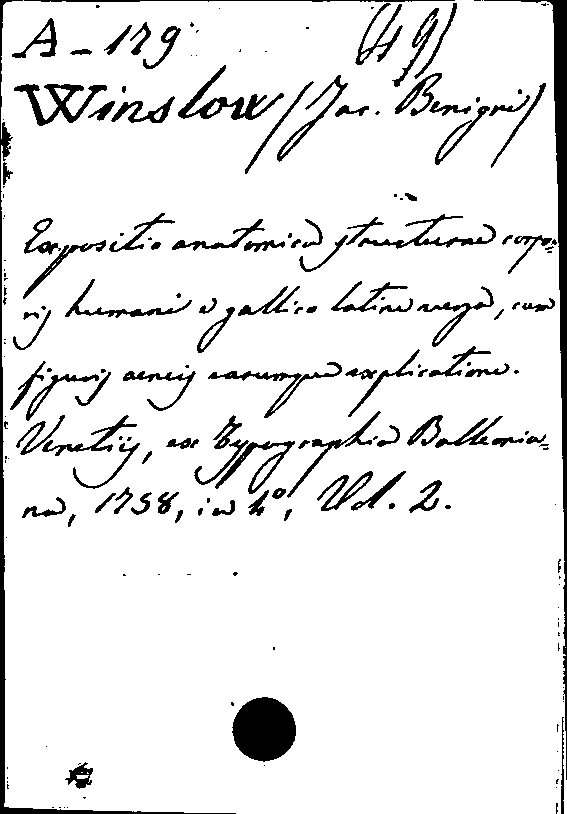 A-179 (49)
Winslow (Jac. Benigni)
Expositio anatomica structurae corpo=
ris humani e gallico latine versa, cum
figuris aeneis earumque explicatione.
Venetiis, ex Typographia Balleonia=
na, 1758, in 4º, Vol. 2.